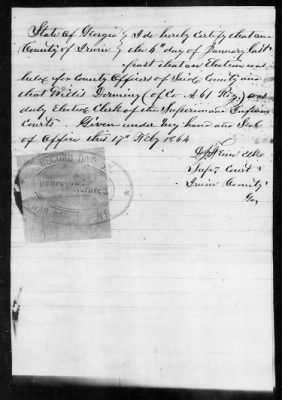 State of Georgia } I do hereby Certify that an
County of Irwin } the 6th day of January last
past that an Election was
held for County Officers of Said County and
that Willis Dorminy (of Co A 61 Reg) was
duly Elected Clerk of the Superior and Inferior
Courts. Given under my hand and Seal
of Office this 17th Feby 1864
Clk
Supr Court
Irwin County
Ga
RECORD DIVISION
WAR DEPARTMENT